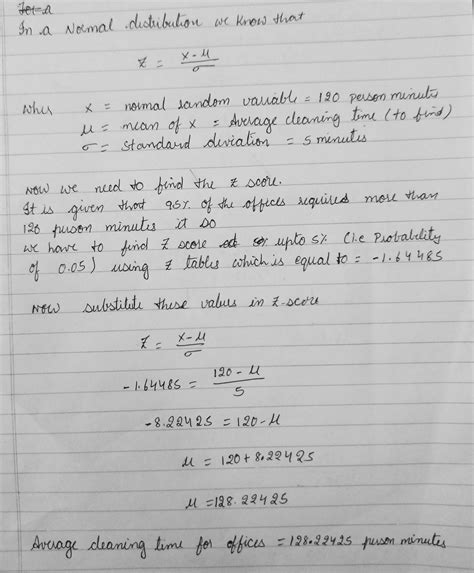 In a Normal distribution we know that
z = x-μ / σ
Wher x = normal random variable = 120 person minutes
μ = mean of x = Average cleaning time (to find)
σ = standard deviation = 5 minutes
NOW we need to find the z score.
It is given that 95% of the offices required more than
120 person minutes it so
we have to find z score upto 5% (i.e Probability
of 0.05) using z tables which is equal to = -1.64485
Now substitute these values in z-score
z = x-μ / σ
-1.64485 = 120-μ / 5
-8.22425 = 120-μ
μ = 120+8.22425
μ = 128.22425
Average cleaning time for offices = 128.22425 person minutes